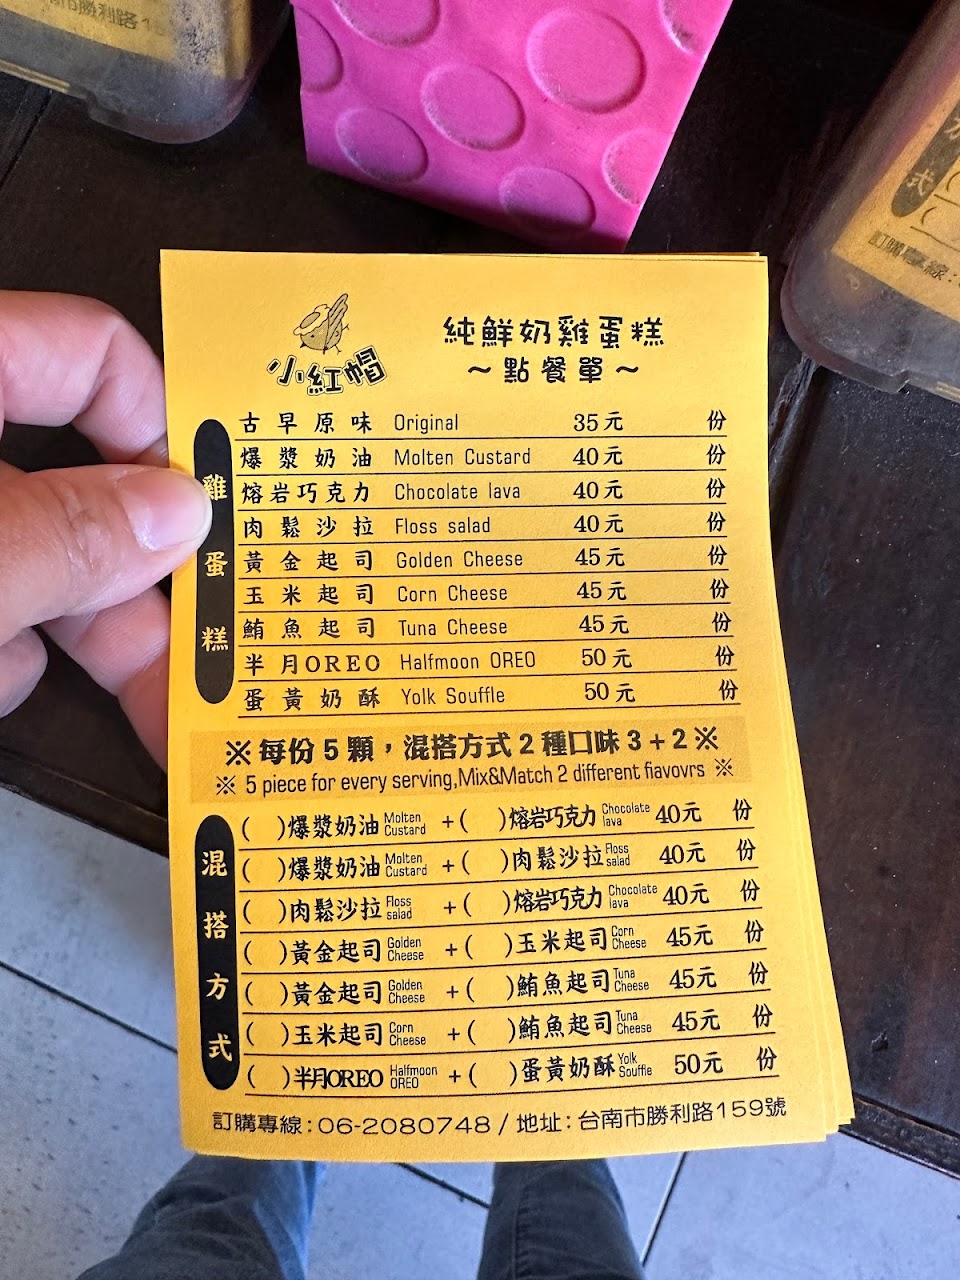 市勝利路15
式
(
訂購專線:
小紅帽
純鮮奶雞蛋糕
～點餐單～
雞蛋糕
古早原味 Original 35元 份
爆漿奶油 Molten Custard 40元 份
熔岩巧克力 Chocolate lava 40元 份
肉鬆沙拉 Floss salad 40元 份
黃金起司 Golden Cheese 45元 份
玉米起司 Corn Cheese 45元 份
鮪魚起司 Tuna Cheese 45元 份
半月OREO Halfmoon OREO 50元 份
蛋黃奶酥 Yolk Souffle 50元 份
※每份5顆，混搭方式2種口味3+2※
※ 5 piece for every serving,Mix&Match 2 different fiavovrs ※
混搭方式
( )爆漿奶油 Molten Custard + ( )熔岩巧克力 Chocolate lava 40元 份
( )爆漿奶油 Molten Custard + ( )肉鬆沙拉 Floss salad 40元 份
( )肉鬆沙拉 Floss salad + ( )熔岩巧克力 Chocolate lava 40元 份
( )黃金起司 Golden Cheese + ( )玉米起司 Corn Cheese 45元 份
( )黃金起司 Golden Cheese + ( )鮪魚起司 Tuna Cheese 45元 份
( )玉米起司 Corn Cheese + ( )鮪魚起司 Tuna Cheese 45元 份
( )半月OREO Halfmoon OREO + ( )蛋黃奶酥 Yolk Souffle 50元 份
訂購專線:06-2080748 / 地址:台南市勝利路159號